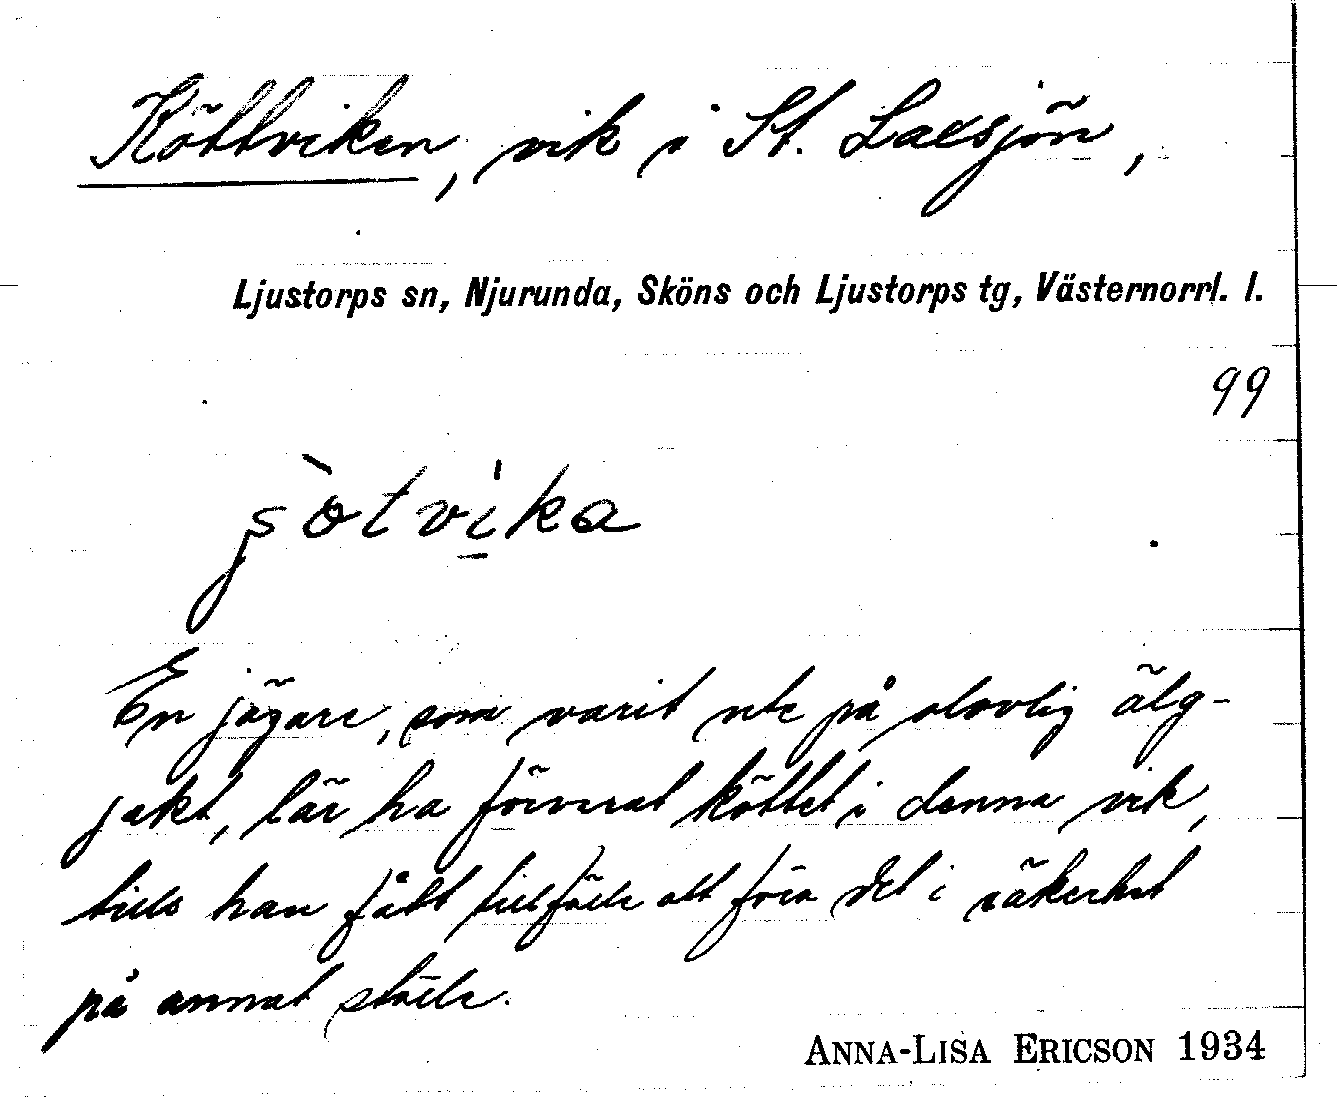 Köttviken, vik i St. Laxsjön,
Ljustorps sn, Njurunda, Sköns och Ljustorps tg, Västernorrl. l.
99
ʂòtvi̱ka
En jägare, som varit ute på olovlig älg-
jakt, lär ha förvarat köttet i denna vik,
tills han fått tillfälle att föra det i säkerhet
på annat ställe.
ANNA-LISA ERICSON 1934